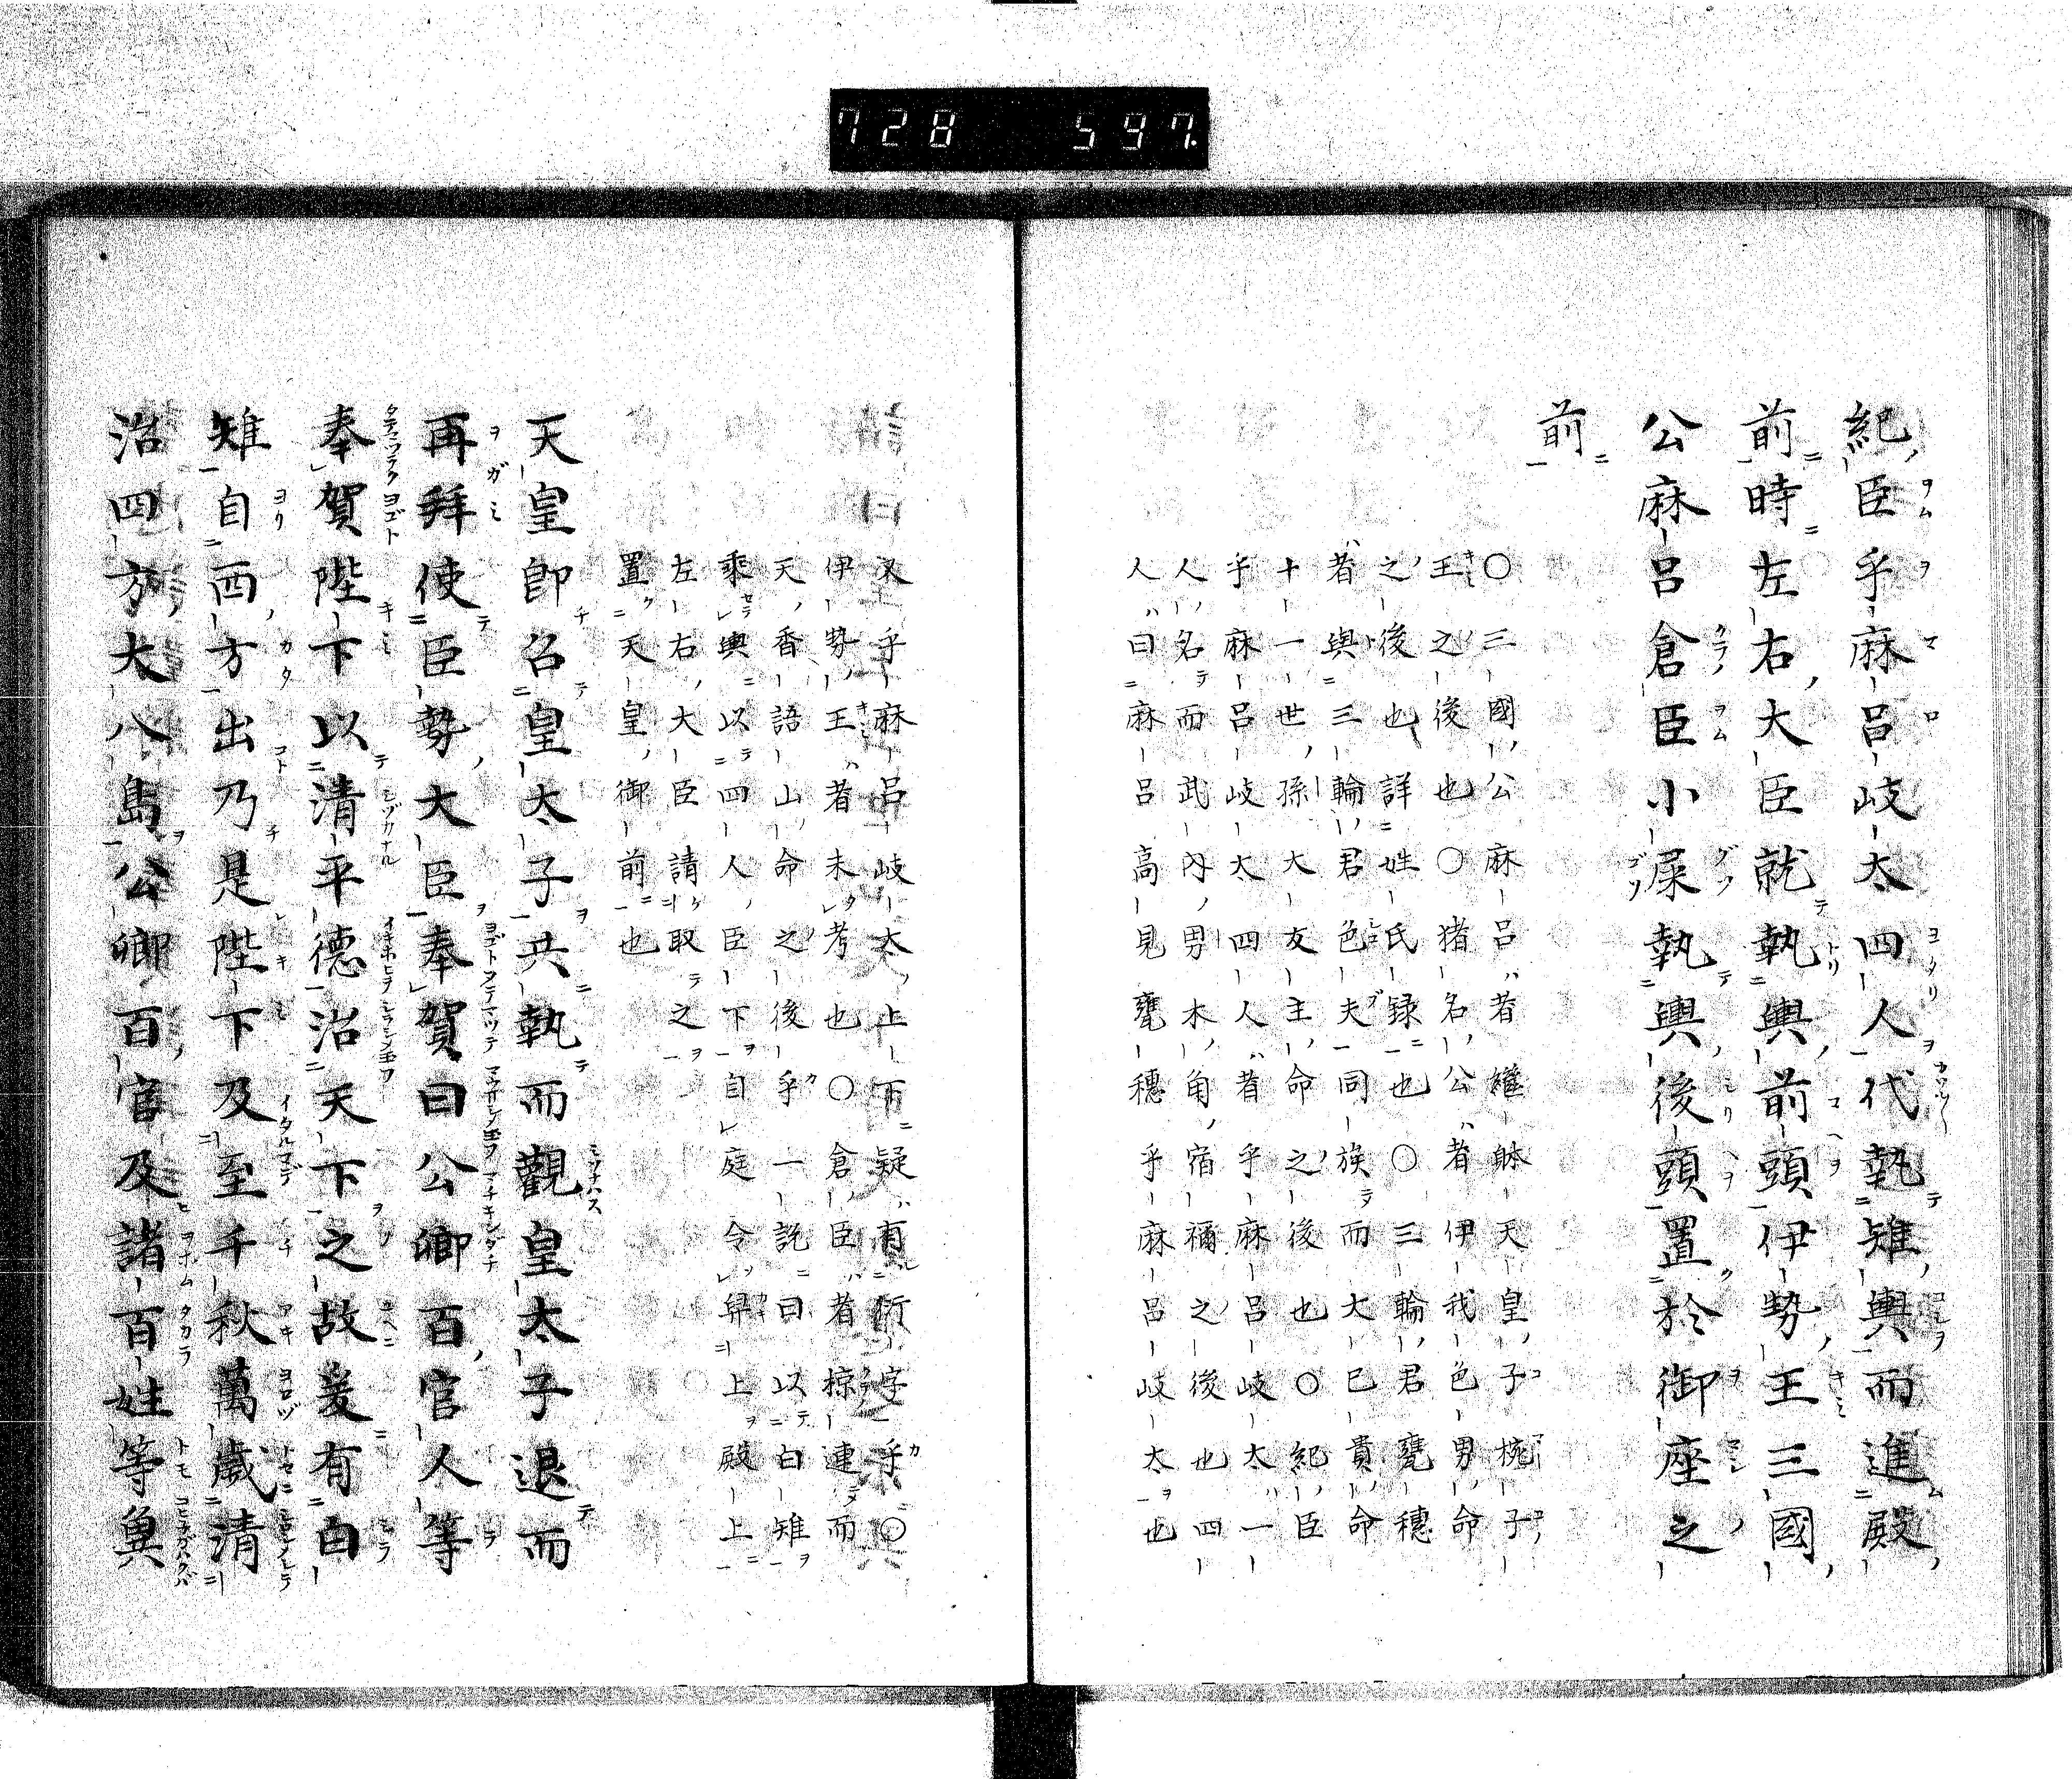 728 597.
紀臣乎麻呂岐太四人代執雉輿而進殿
前時左右大臣就執輿前頭伊勢王三國
公麻呂倉臣小屎執輿後頭置於御座之
前
○三國公麻呂者繼躰天皇子椀子
王之後也○猪名公者伊我色男命
之後也詳姓氏録也○三輪君甕穗
者與三輪君色夫同族而大己貴命
十一世孫大友主命之後也○紀臣
乎麻呂岐太四人者乎麻呂岐太一
人名而武內男木角宿禰之後也四
人曰麻呂高見甕穗乎麻呂岐太也
又乎麻呂岐太上下疑有衍字乎○
伊勢王者未考也○倉臣者椋連而
天香語山命之後乎一説曰以白雉
乘輿以四人臣下自庭令昇上殿上
左右大臣請取之
置天皇御前也
天皇卽召皇太子共執而觀皇太子退而
再拜使臣勢大臣奉賀曰公卿百官人等
奉賀陛下以清平德治天下之故爰有白
雉自西方出乃是陛下及至千秋萬歲清
治四方大八島公卿百官及諸百姓等冀